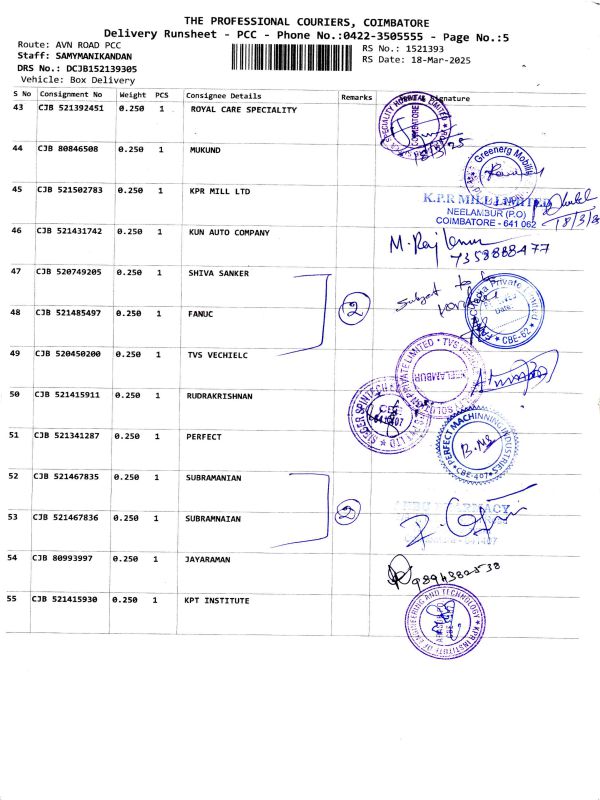 THE PROFESSIONAL COURIERS, COIMBATORE
Delivery Runsheet - PCC - Phone No.:0422-3505555 - Page No.:5
Route: AVN ROAD PCC
RS No.: 1521393
Staff: SAMYMANIKANDAN
RS Date: 18-Mar-2025
DRS No.: DCJB152139305
Vehicle: Box Delivery
S No Consignment No Weight PCS Consignee Details Remarks Signature
43 CJB 521392451 0.250 1 ROYAL CARE SPECIALITY
COIMBATORE
18/3/25
44 CJB 80846508 0.250 1 MUKUND
Greenerg Mobility
45 CJB 521502783 0.250 1 KPR MILL LTD
K.P.R MILL LIMITED
NEELAMBUR (P.O)
COIMBATORE - 641 062
18/3/25
46 CJB 521431742 0.250 1 KUN AUTO COMPANY
7358888477
47 CJB 520749205 0.250 1 SHIVA SANKER
Subject to
48 CJB 521485497 0.250 1 FANUC
2
Private Limited
CBE-62
49 CJB 520450200 0.250 1 TVS VECHIELC
PRIVATE LIMITED * TVS
NEELAMBUR
50 CJB 521415911 0.250 1 RUDRAKRISHNAN
51 CJB 521341287 0.250 1 PERFECT
PERFECT MACHINNING INDUSTRIES
CBE-407
52 CJB 521467835 0.250 1 SUBRAMANIAN
53 CJB 521467836 0.250 1 SUBRAMNAIAN
2
54 CJB 80993997 0.250 1 JAYARAMAN
55 CJB 521415930 0.250 1 KPT INSTITUTE
KPR INSTITUTE OF ENGINEERING AND TECHNOLOGY